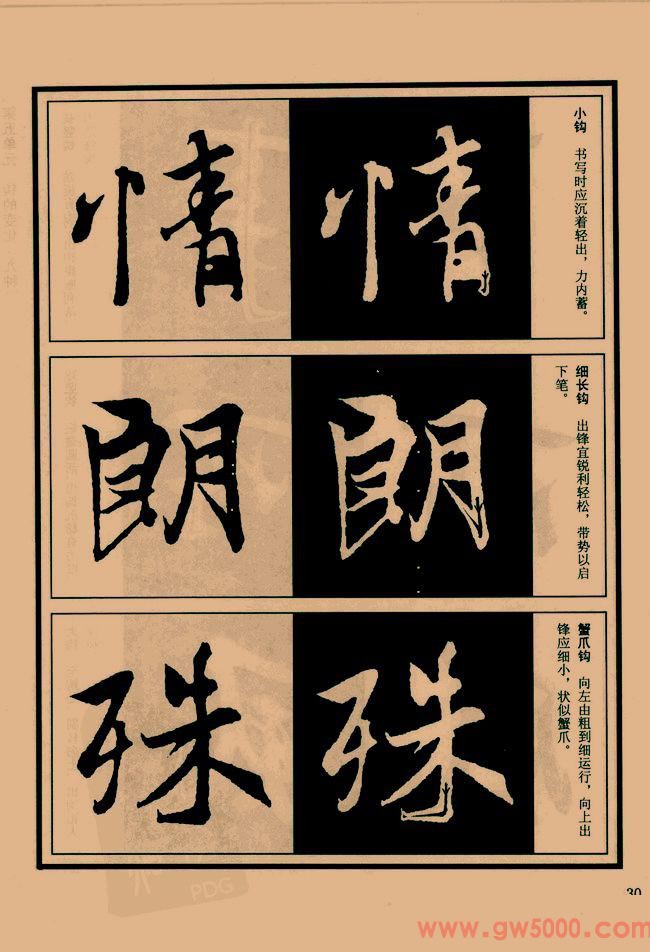 小钩 书写时应沉着轻出，力内蓄。
情 情
细长钩 出锋宜锐利轻松，带势以启
下笔。
朗 朗
蟹爪钩 向左由粗到细运行，向上出
锋应细小，状似蟹爪。
殊 殊
PDG
30
www.gw5000.com